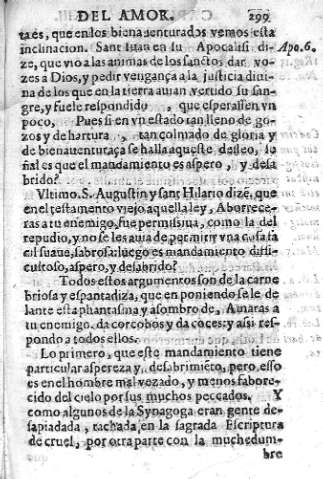 DEL AMOR. 299
ta es, que en los bienauenturados vemos esta
inclinacion. Sant Iuan en su Apocalisi di- Apo.6.
ze, que vio a las animas de los sanctos dar vo-
zes a Dios, y pedir vengança a la justicia diui-
na de los que en la tierra auian vertido su san-
gre, y fuele respondido, que esperassen vn
poco, Pues si en vn estado tan lleno de go-
zos y de hartura, tan colmado de gloria y
de bienauenturaça se halla aqueste desseo, se
ñal es que el mandamiento es aspero, y desa
brido?
Vltimo. S. Augustin y sant Hilario dizẽ, que
en el testamento viejo aquella ley, Aborrece-
ras a tu enemigo, fue permissiua, como la del
repudio, y no se les auia de permitir vna cosa fa
cil suaue, sabrosa: luego es mandamiento diffi-
cultoso, aspero, y desabrido?
Todos estos argumentos son de la carne
briosa y espantadiza, que en poniendo se le de
lante esta phantasma y asombro de, Amaras a
tu enemigo, da corcobos y da coces: y assi res-
pondo a todos ellos.
Lo primero, que este mandamiento tiene
particular aspereza y desabrimiẽto, pero esso
es en el hombre mal vezado, y menos fabore-
cido del cielo por sus muchos peccados. Y
como algunos de la Synagoga eran gente de-
sapiadada, tachada, en la sagrada Escriptura
de cruel, por otra parte con la muchedum-
bre